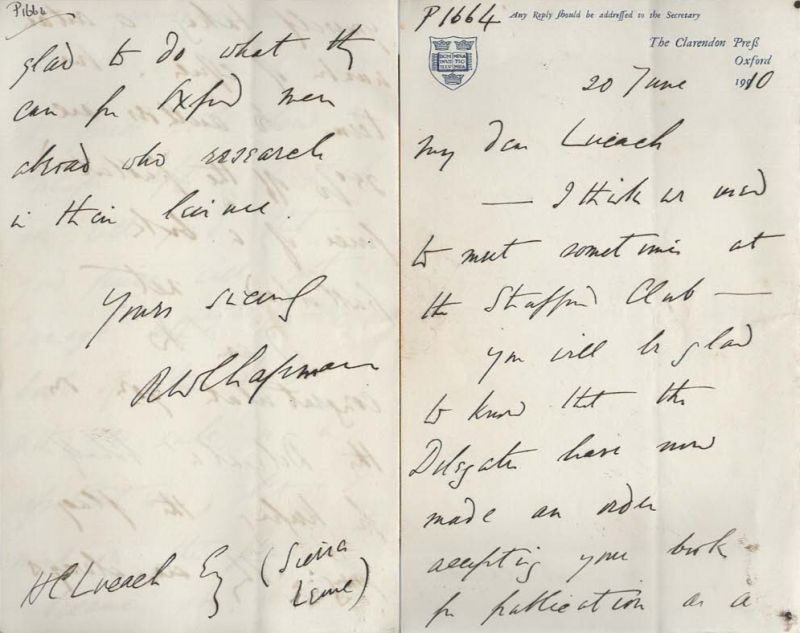 P1664
Any Reply should be addressed to the Secretary
The Clarendon Press
Oxford
20 June 1910
My dear Lueach
— I think we used
to meet sometimes at
the Strafford Club —
you will be glad
to know that the
Delegates have now
made an order
accepting your book
for publication as a
P1664
glad to do what they
can for Oxford men
abroad who research
in their leisure.
Yours sincerely
RW Chapman
HC Lueach Esq (Sierra
Leone)